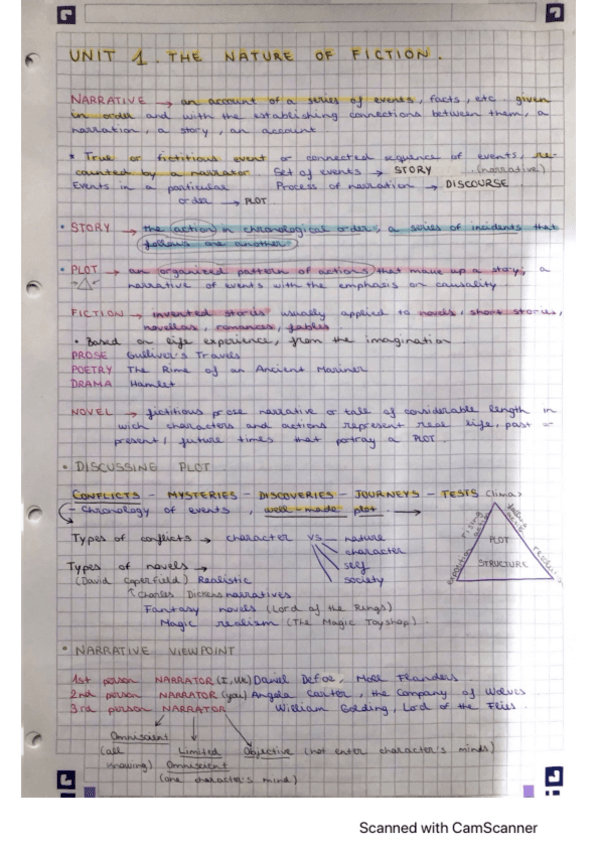 UNIT 1. THE NATURE OF FICTION.
NARRATIVE → an account of a series of events, facts, etc. given
in order and with the establishing connections between them, a
narration, a story, an account
* True or fictitious event or connected sequence of events, re-
counted by a narrator. Set of events → STORY (narrative)
Events in a particular Process of narration → DISCOURSE.
order → PLOT.
• STORY → the action in chronological order; a series of incidents that
follows one another
• PLOT → an organized pattern of actions that make up a story; a
narrative of events with the emphasis on causality
FICTION → invented stories usually applied to novels, short stories,
novellas, romances, fables.
• Based on life experience, from the imagination
PROSE Gulliver's Travels
POETRY The Rime of an Ancient Mariner
DRAMA Hamlet
NOVEL → fictitious prose narrative or tale of considerable length in
wich characters and actions represent real life, past or
present / future times that portray a PLOT.
• DISCUSSING PLOT
CONFLICTS - MYSTERIES - DISCOVERIES - JOURNEYS - TESTS
Climax
- Chronology of events, well-made plot. →
exposition rising action
falling action
PLOT
STRUCTURE
Types of conflicts → character vs nature
character
self
society
Types of novels →
(David Coperfield) Realistic
↑ Charles Dickens narratives
Fantasy novels (Lord of the Rings)
Magic realism (The Magic Toyshop).
• NARRATIVE VIEWPOINT
1st person NARRATOR (I, we) Daniel Defoe, Moll Flanders.
2nd person NARRATOR (you) Angela Carter, the Company of Wolves
3rd person NARRATOR William Golding, Lord of the Flies.
Omniscient
(all
knowing)
Limited
Omniscient
(one character's mind)
Objective (not enter character's minds)
Scanned with CamScanner